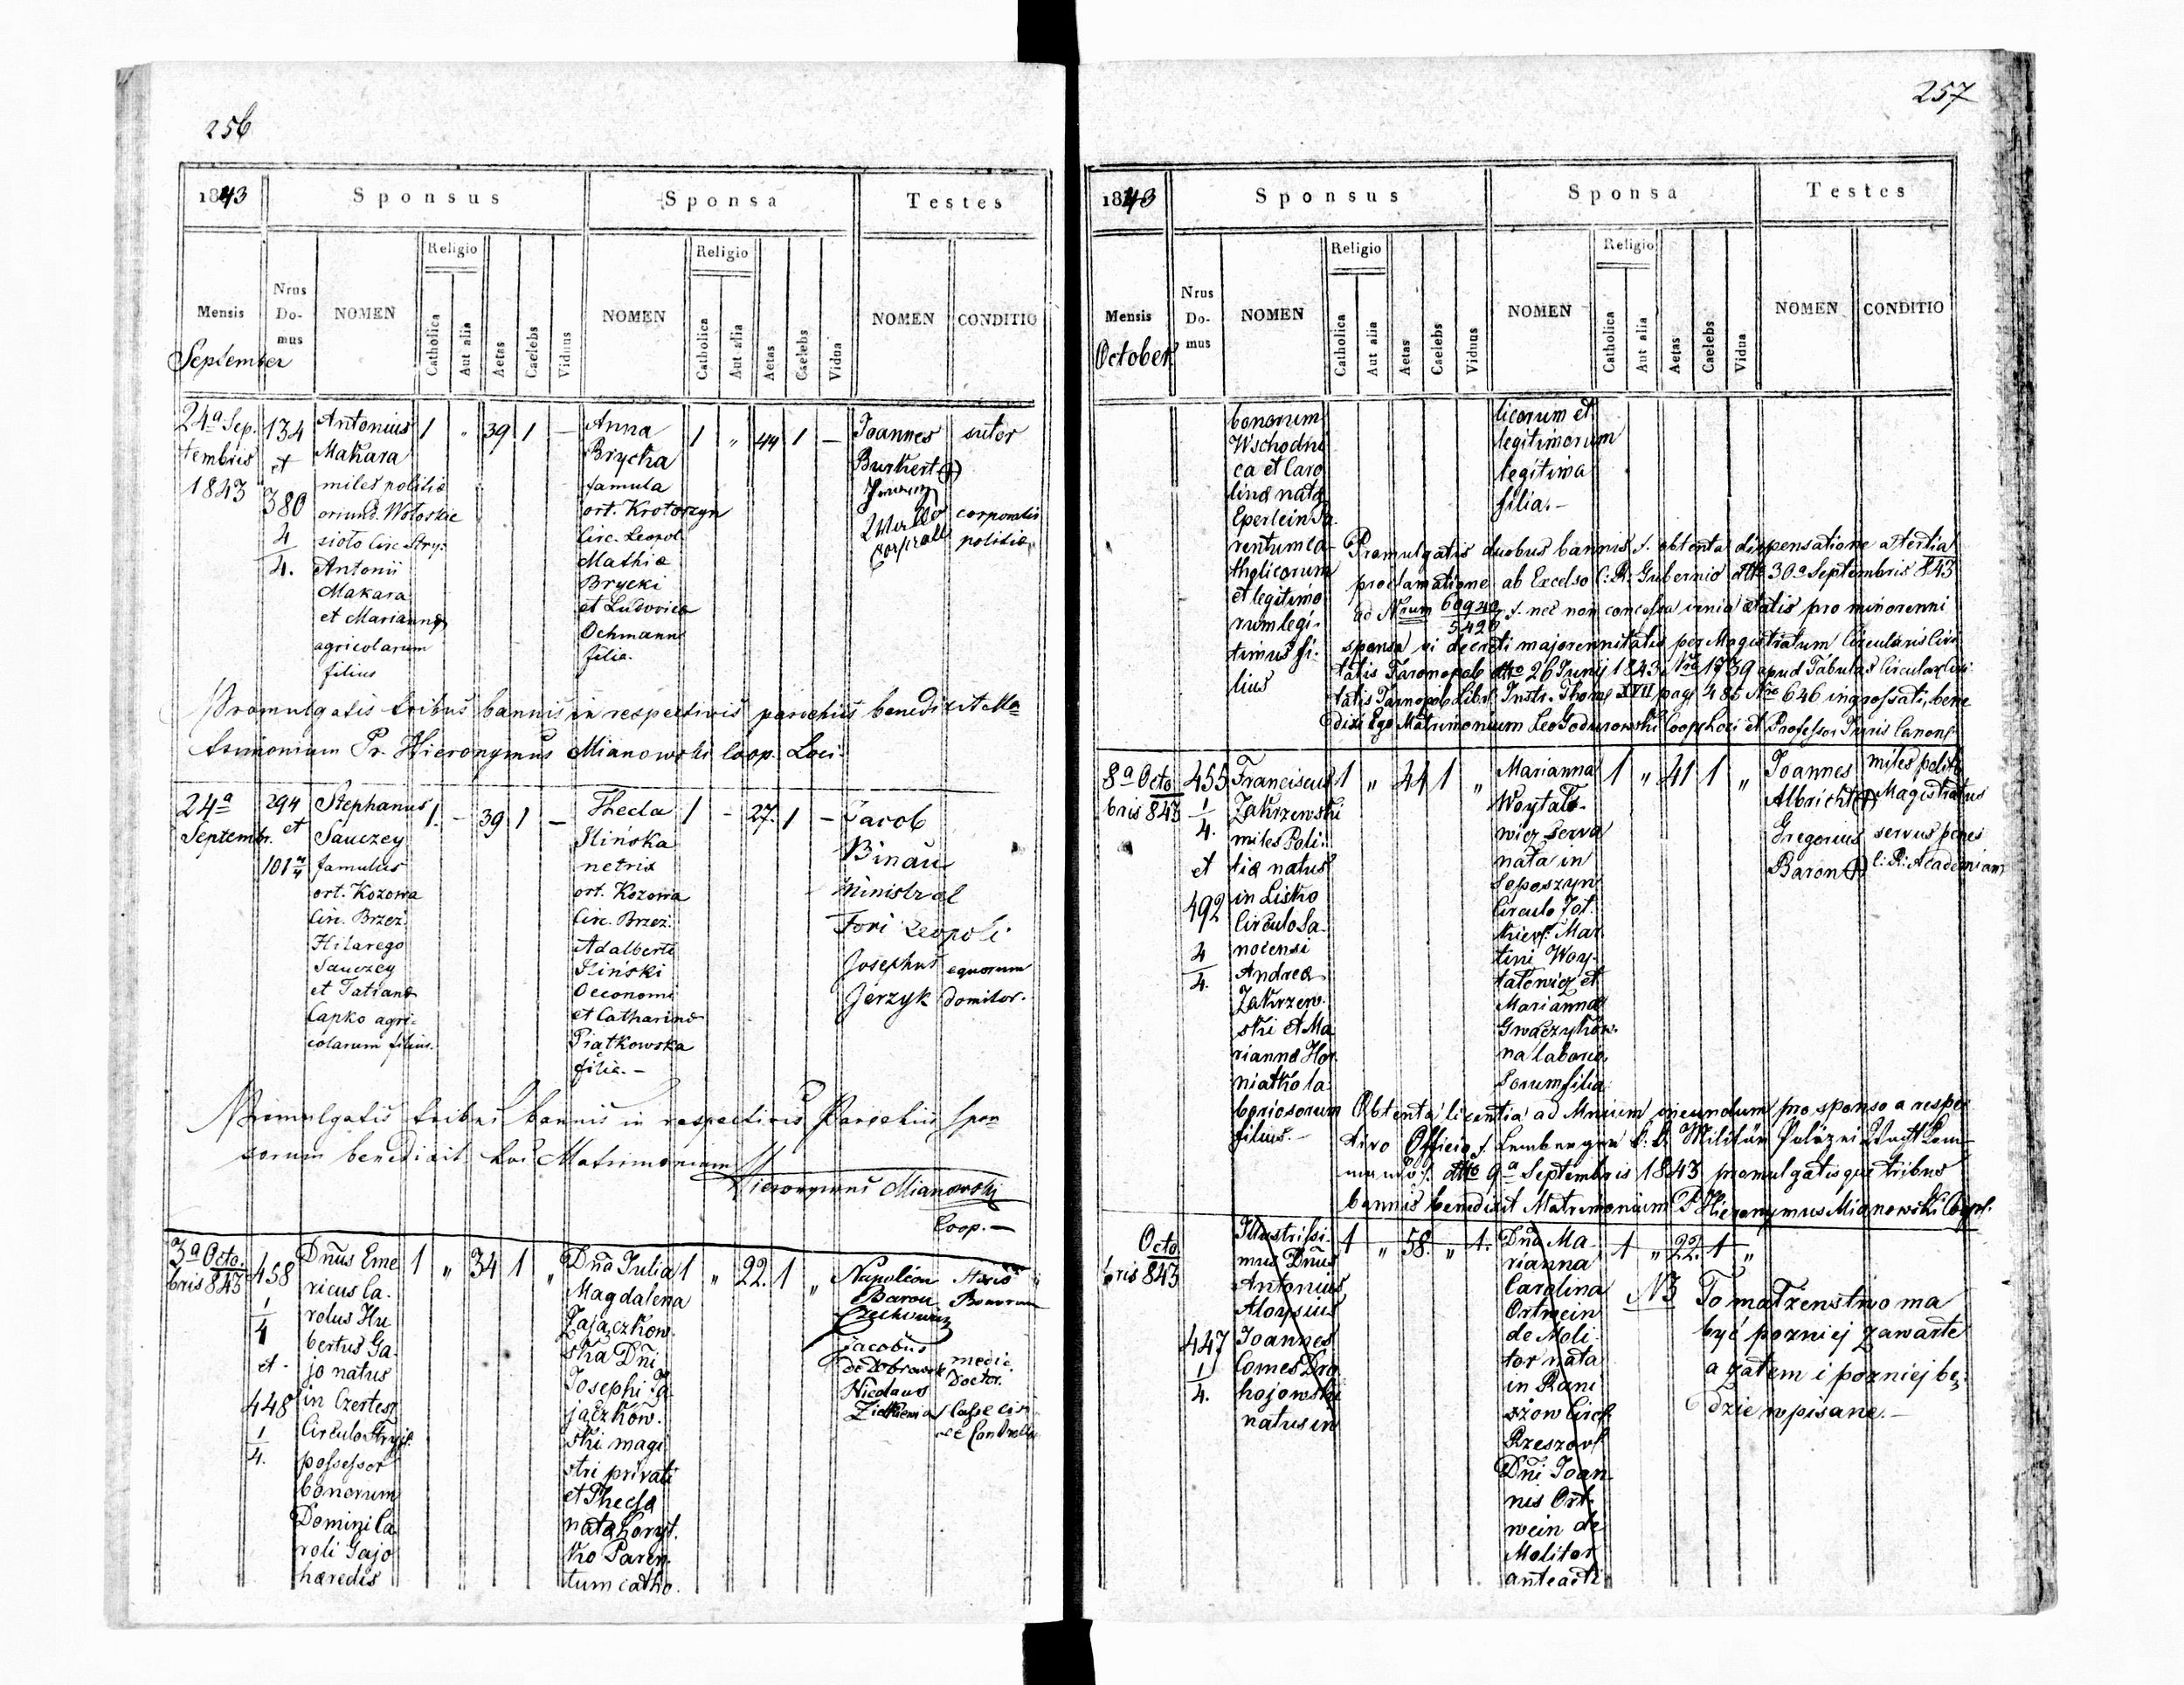 256
1843
Sponsus
Sponsa
Testes
Mensis
September
Nrus Do-
mus
NOMEN
Religio
Catholica
Aut alia
Aetas
Caelebs
Viduus
NOMEN
Religio
Catholica
Aut alia
Aetas
Caelebs
Vidua
NOMEN
CONDITIO
24a Sep.
tembris
1843
134
et
380
4
4.
Antonius
Makara
miles politiæ
oriund. Wołoskie
sioło Circ. Stry:
Antonii
Makara
et Mariannæ
agricolarum
filius
1 " 39 1 —
Anna
Brycka
famula
ort. Krotoszyn
Circ. Leopol
Mathiæ
Brycki
et Ludovica
Ochmann
filia.
1 " 44 1 —
Joannes
Burkert
sutor
corporalis
politiæ
Promulgatis tribus bannis in respectivis parochiis benedixit Ma=
trimonium Pr. Hieronymus Mianowski Coop. Loci.
24a
Septembr.
294
et
101
Stephanus
Sauczey
famulus
ort. Kozowa
Circ. Brzez.
Hilarego
Sauczey
et Tatianæ
Capko agri-
colarum filius.
1. - 39 1 —
Thecla
Ilińska
netrix
ort. Kozowa
Circ. Brzez.
Adalberti
Iliński
Oeconomi
et Catharinæ
Piątkowska
filia. —
1 - 27. 1 —
Jacob
Binau
Ministral
Fori Leopoli
Josephus
Jerzyk
equorum
domitor.
Promulgatis tribus bannis in respectivis Parochiis spon
sorum benedixit hoc Matrimonium
Hieronymus Mianowski
Coop. —
3a Octo
bris 843
458
1
4
et
448
1
4.
Dñus Eme
ricus Ca-
rolus Hu
bertus Ga-
jo natus
in Czertesz
Circulo Stryj.
possessor
bonorum
Domini Ca
roli Gajo
hæredis
1 " 34 1 "
Dña Julia
Magdalena
Zajączkow-
ska Dñi
Josephi Za-
jączkow-
ski magi
stri privati
et Thecla
nata Koryt.
ko Paren-
tum catho.
1 " 22. 1 "
Napoléon
Baron
Czechowicz
Hæres
Bonorum
Jacobus
de Dobrowolski
medic.
Doctor.
Nicolaus
257
1843
Sponsus
Sponsa
Testes
Mensis
October
Nrus
Do-
mus
NOMEN
Religio
Catholica
Aut alia
Aetas
Caelebs
Viduus
NOMEN
Religio
Catholica
Aut alia
Aetas
Caelebs
Vidua
NOMEN
CONDITIO
bonorum
Wschodni
ca et Caro
linæ natæ
Eperlein Pa-
rentum ca-
tholicorum
et legitimo
rum legi-
timus fi-
lius
licorum et
legitimorum
legitima
filia. —
Promulgatis duobus bannis /. obtenta dispensatione a tertia
proclamatione ab Excelso C: R: Gubernio dtto 30a Septembris 843
ad Nrum /. nec non concessa venia ætatis pro minorenni
sponsa vi decreti majorennitatis per Magistratum Circularis Civi
tatis Tarnopol dtto 26 Junij 1843 Nro 1739 apud Tabulas Circular Civi
tatis Tarnopol Libr. Instr. Thome XVII pag 485 Nro 646 ingrossati, bene
dixi Ego Matrimonium Leo Godurowski Coop. Loci et Professor Juris Canon.
8a Octo
bris 843
455
1
4.
et
492
4
4.
Franciscus
Zakrzewski
miles Poli-
tiæ natus
in Lisko
Circulo Sa-
nocensi
Andreæ
Zakrzew-
ski et Ma
riannæ Hor
niatko la
boriosorum
filius. —
1 " 44 1 "
Marianna
Woytalo-
wicz serva
nata in
Leposzyn
Circulo Żoł.
kiew: Mar
tini Woy-
talowicz et
Mariannæ
Gwaczykow-
na laborio
sorum filia
1 " 41 1 "
Joannes
Albricht
miles polit.
Magistratus
Gregorius
Baron
servus penes
C: R: Academiam
Obtenta licentia ad Mnium ineundum pro sponso a respec
tivo Officio /. Lemberger k. k. Militär Polizei Wacht Com-
mando /. dtto 9a Septembris 1843 promulgatisque tribus
bannis benedixit Matrimonium Pr Hieronymus Mianowski Coop.
Octo
bris 843
447
1
4.
Illustrissi-
mus Dñus
Antonius
Aloysius
Joannes
Comes Dro
hojowski
natus in
1 " 58. " 1.
Dña Ma-
rianna
Carolina
Ortwein
de Moli-
tor nata
in Rani
szow Circ.
Rzeszov.
Dñi Joan-
nis Ort-
wein de
Molitor
anteacti
1 " 22. 1 "
NB To małzenstwo ma
być pozniej zawarte
a zatem i pozniej bę-
dzie wpisane. —